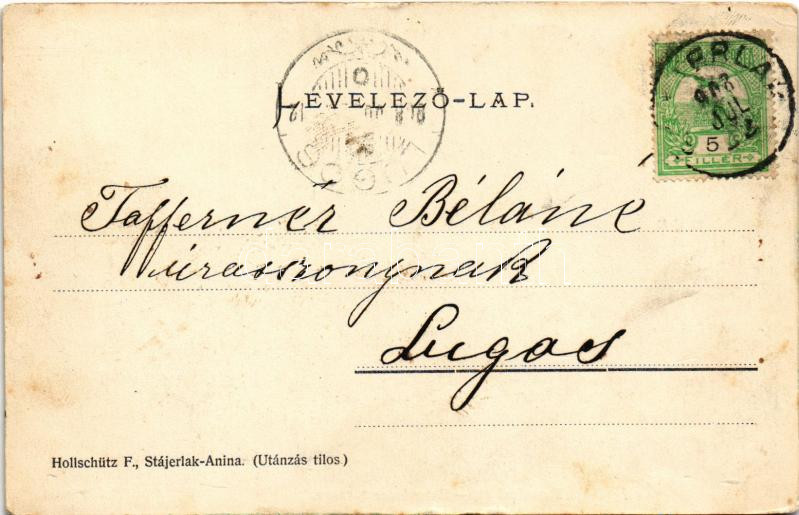 LEVELEZŐ-LAP.
5
FILLÉR
Tafferner Béláné
úrasszonynak
Lugos
Hollschütz F., Stájerlak-Anina. (Utánzás tilos)